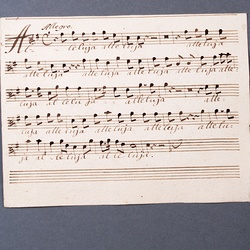 Allegro
Al- leluja alleluja alleluja
alleluja alleluja alleluja alle
luja al leluja alleluja alle-
luja alleluja alleluja allelu-
ja al le luja al le luja.